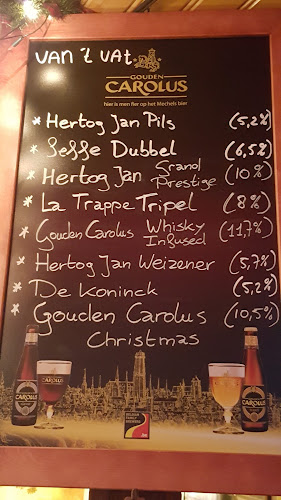 van 't vat
GOUDEN
CAROLUS
hier is men fier op het Mechels bier
* Hertog Jan Pils (5,2%)
* Leffe Dubbel (6,5%)
* Hertog Jan Grand Prestige (10%)
* La Trappe Tripel (8%)
* Gouden Carolus Whisky Infused (11,7%)
* Hertog Jan Weizener (5,7%)
* De Koninck (5,2%)
* Gouden Carolus (10,5%)
Christmas
CAROLUS
CAROLUS
BELGIAN
FAMILY
BREWERS